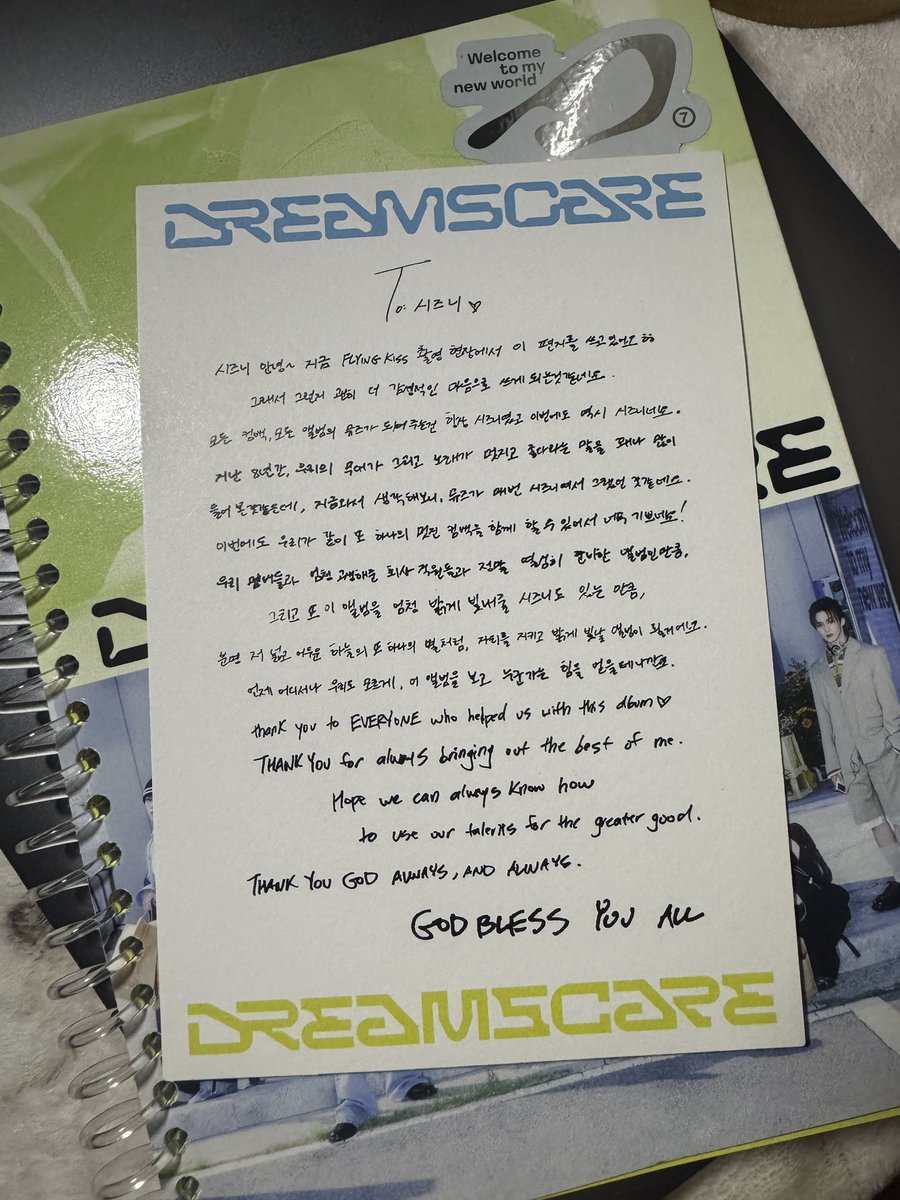 Welcome
to my
new world
7
DREAMSCAPE
To. 시즈니♡
시즈니 안녕~ 지금 FLYING KISS 촬영 현장에서 이 편지를 쓰고있어요 하
그래서 그런지 괜히 더 감성적인 마음으로 쓰게 되는것같네요.
모든 컴백, 모든 앨범의 뮤즈가 되어주는건 항상 시즈니였고 이번에도 역시 시즈니네요.
지난 8년간, 우리의 무대가 그리고 노래가 멋지고 좋다라는 말을 꽤나 많이
들어본것같은데, 지금와서 생각해보니, 뮤즈가 매번 시즈니여서 그랬던 것같네요.
이번에도 우리가 같이 또 하나의 멋진 컴백을 함께 할 수 있어서 너무 기쁘네요!
우리 멤버들과 엄청 고생해준 회사 직원들과 정말 열심히 준비한 앨범인만큼,
그리고 또 이 앨범을 엄청 밝게 빛내줄 시즈니도 있는 만큼,
분명 저 넓고 어두운 하늘의 또 하나의 별처럼, 자리를 지키고 밝게 빛날 앨범이 될거에요.
언제 어디서나 우리도 모르게, 이 앨범을 보고 누군가는 힘을 얻을테니까요.
thank you to EVERYONE who helped us with this album♡
THANK YOU for always bringing out the best of me.
Hope we can always know how
to use our talents for the greater good.
THANK YOU GOD ALWAYS, AND ALWAYS.
GOD BLESS YOU ALL
DREAMSCAPE